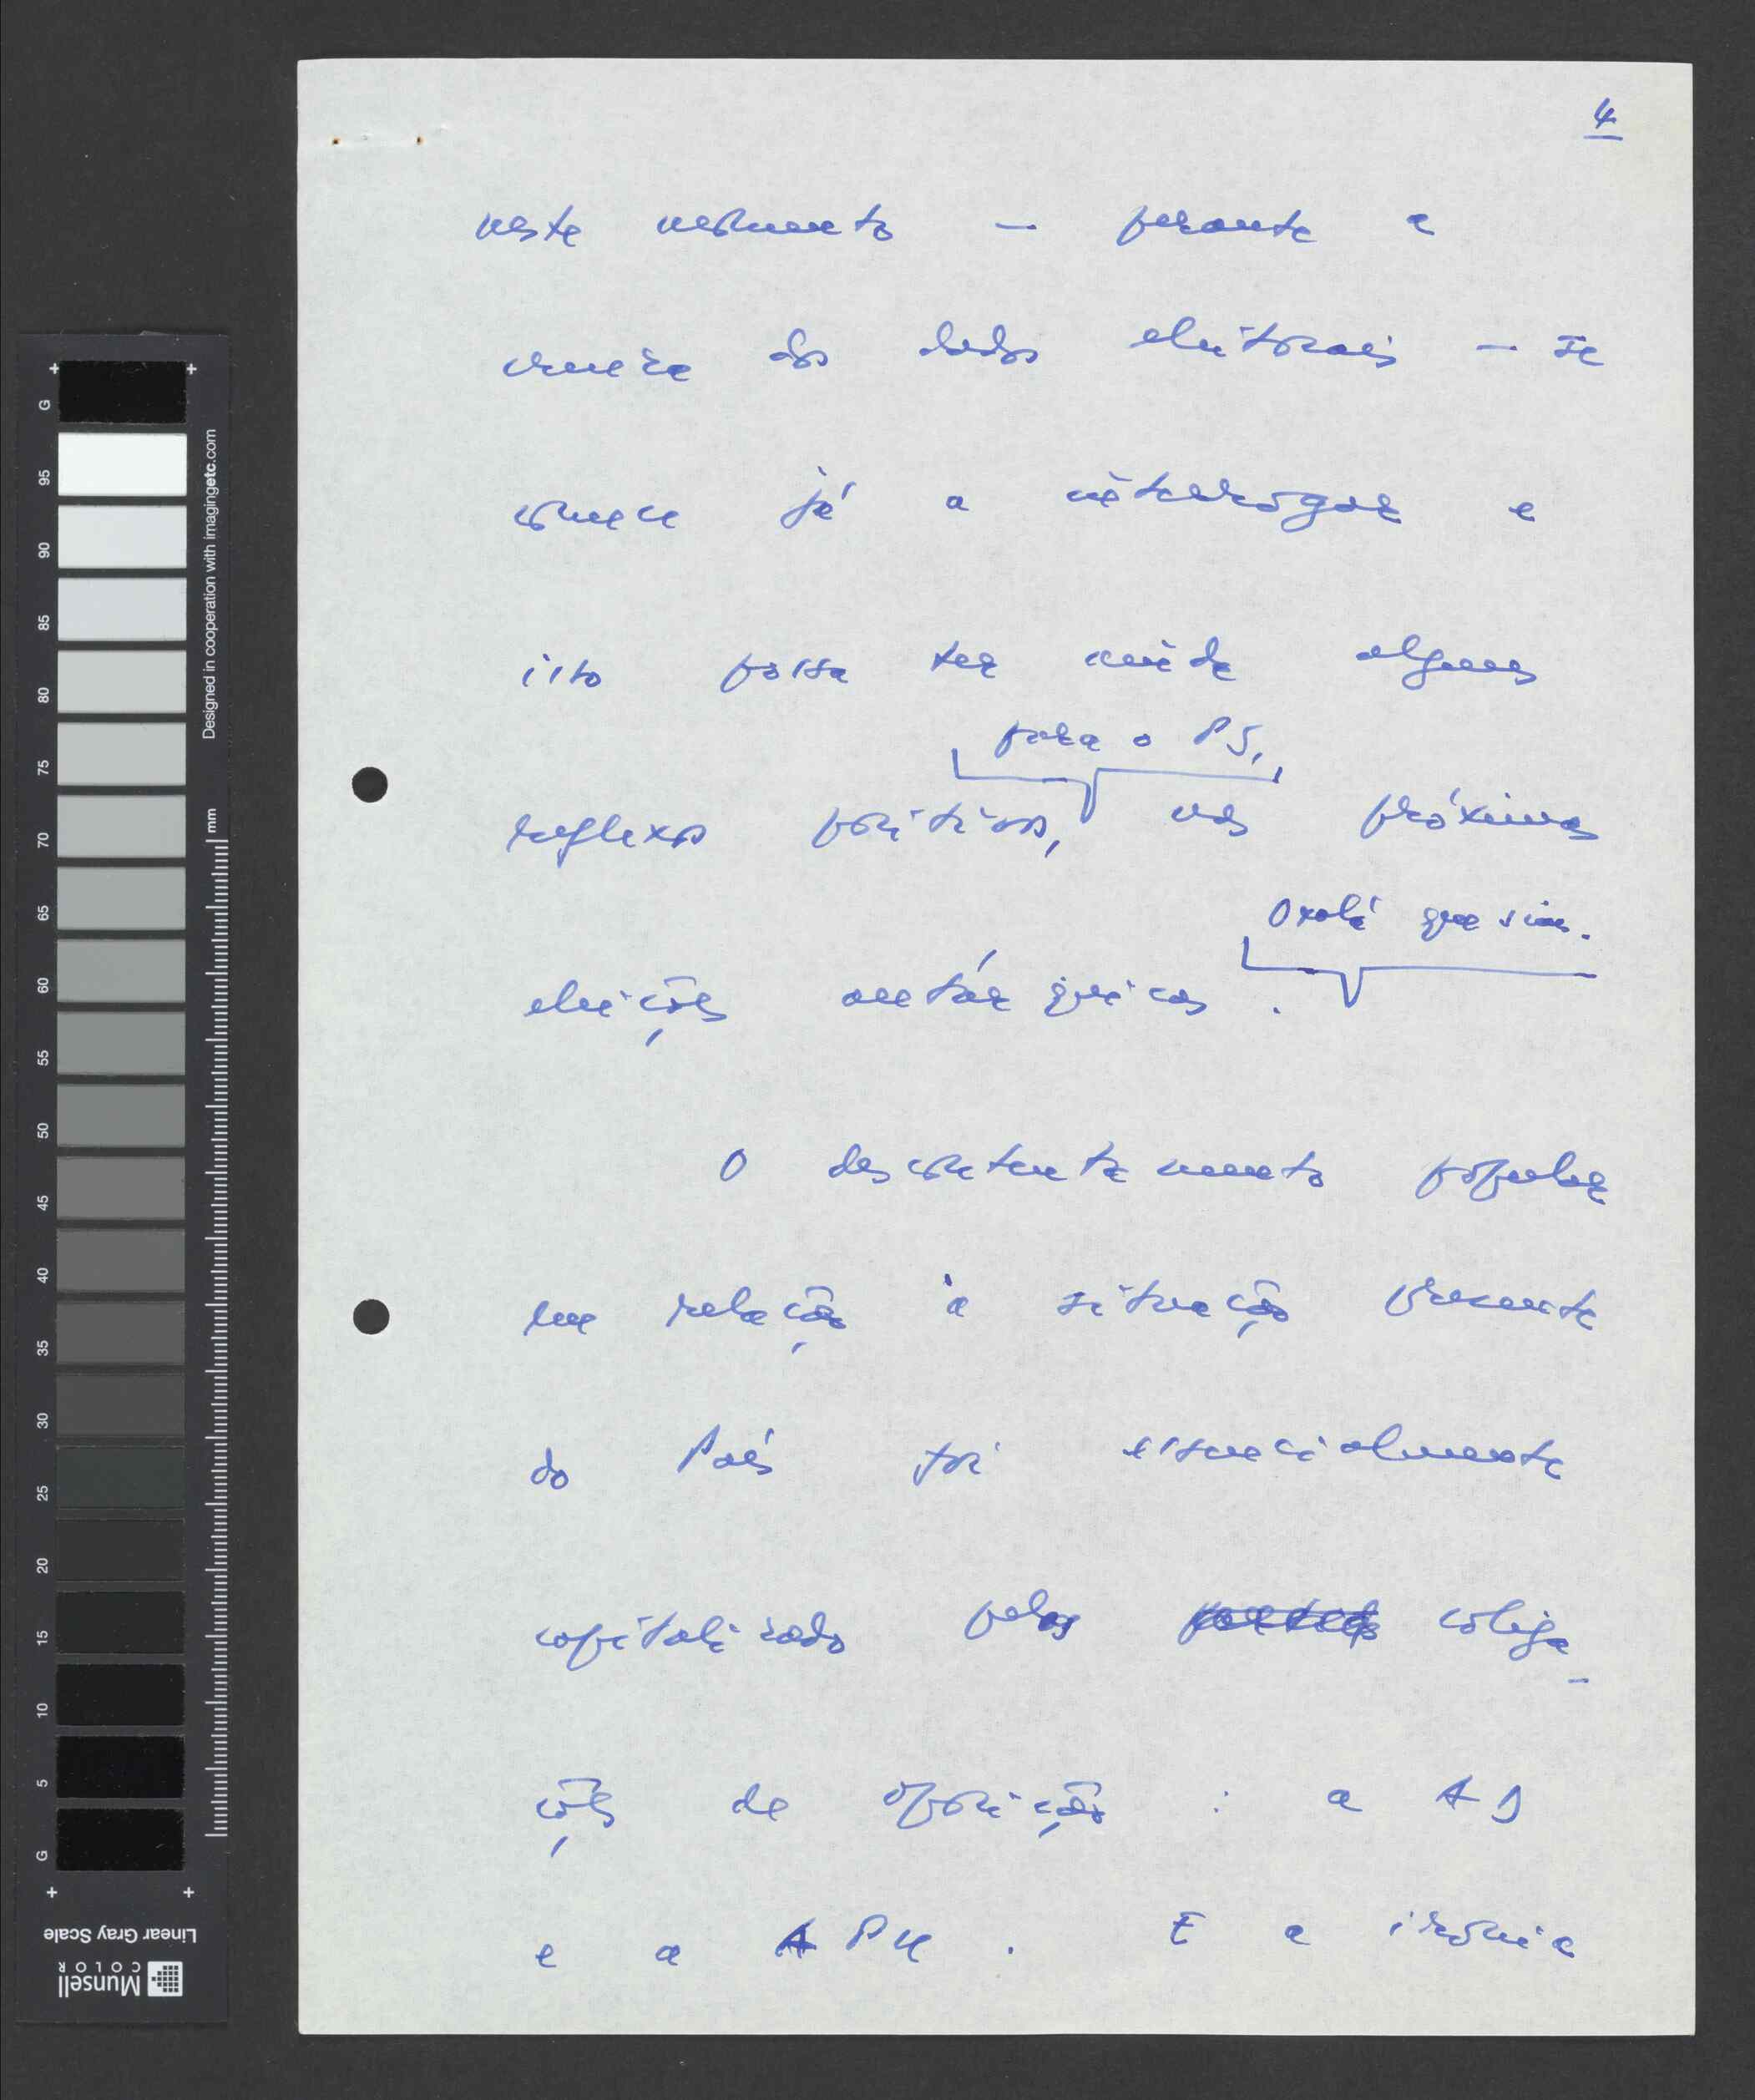 4
neste momento — perante a
crueza dos dados eleitorais — se
comece já a interrogar e
isto possa ter ainda alguns
para o PS,
reflexos positivos, nas próximas
Oxalá que sim.
eleições autárquicas.
O descontentamento popular
em relação à situação presente
do País foi essencialmente
capitalizado pelas coliga-
ções de oposição: a AD
e a APU. E a ironia
G
95
90
85
80
75
70
65
60
55
50
45
40
35
30
25
20
15
10
5
G
mm
Designed in cooperation with imagingetc.com
Linear Gray Scale
Munsell
COLOR